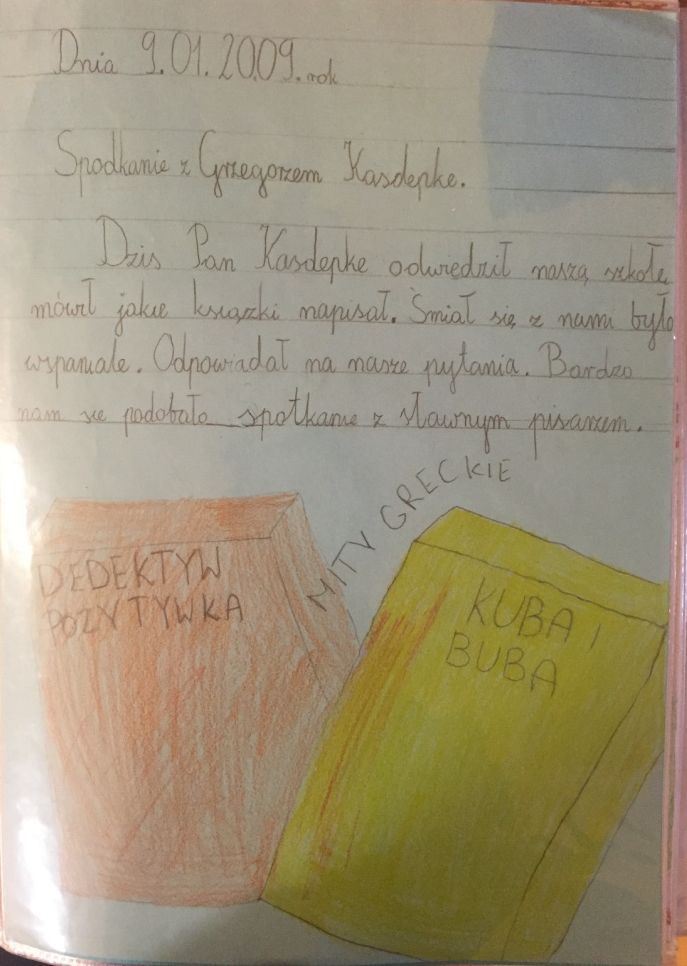 Dnia 9.01.2009.rok
Spodkanie z Grzegorzem Kasdepke.
Dzis Pan Kasdepke odwiedził naszą szkołę
mówił jakie książki napisał. Śmiał się z nami było
wspaniale. Odpowiadał na nasze pytania. Bardzo
nam się podobało spotkanie z sławnym pisarzem.
MITY GRECKIE
DEDEKTYW
POZYTYWKA
KUBA I
BUBA